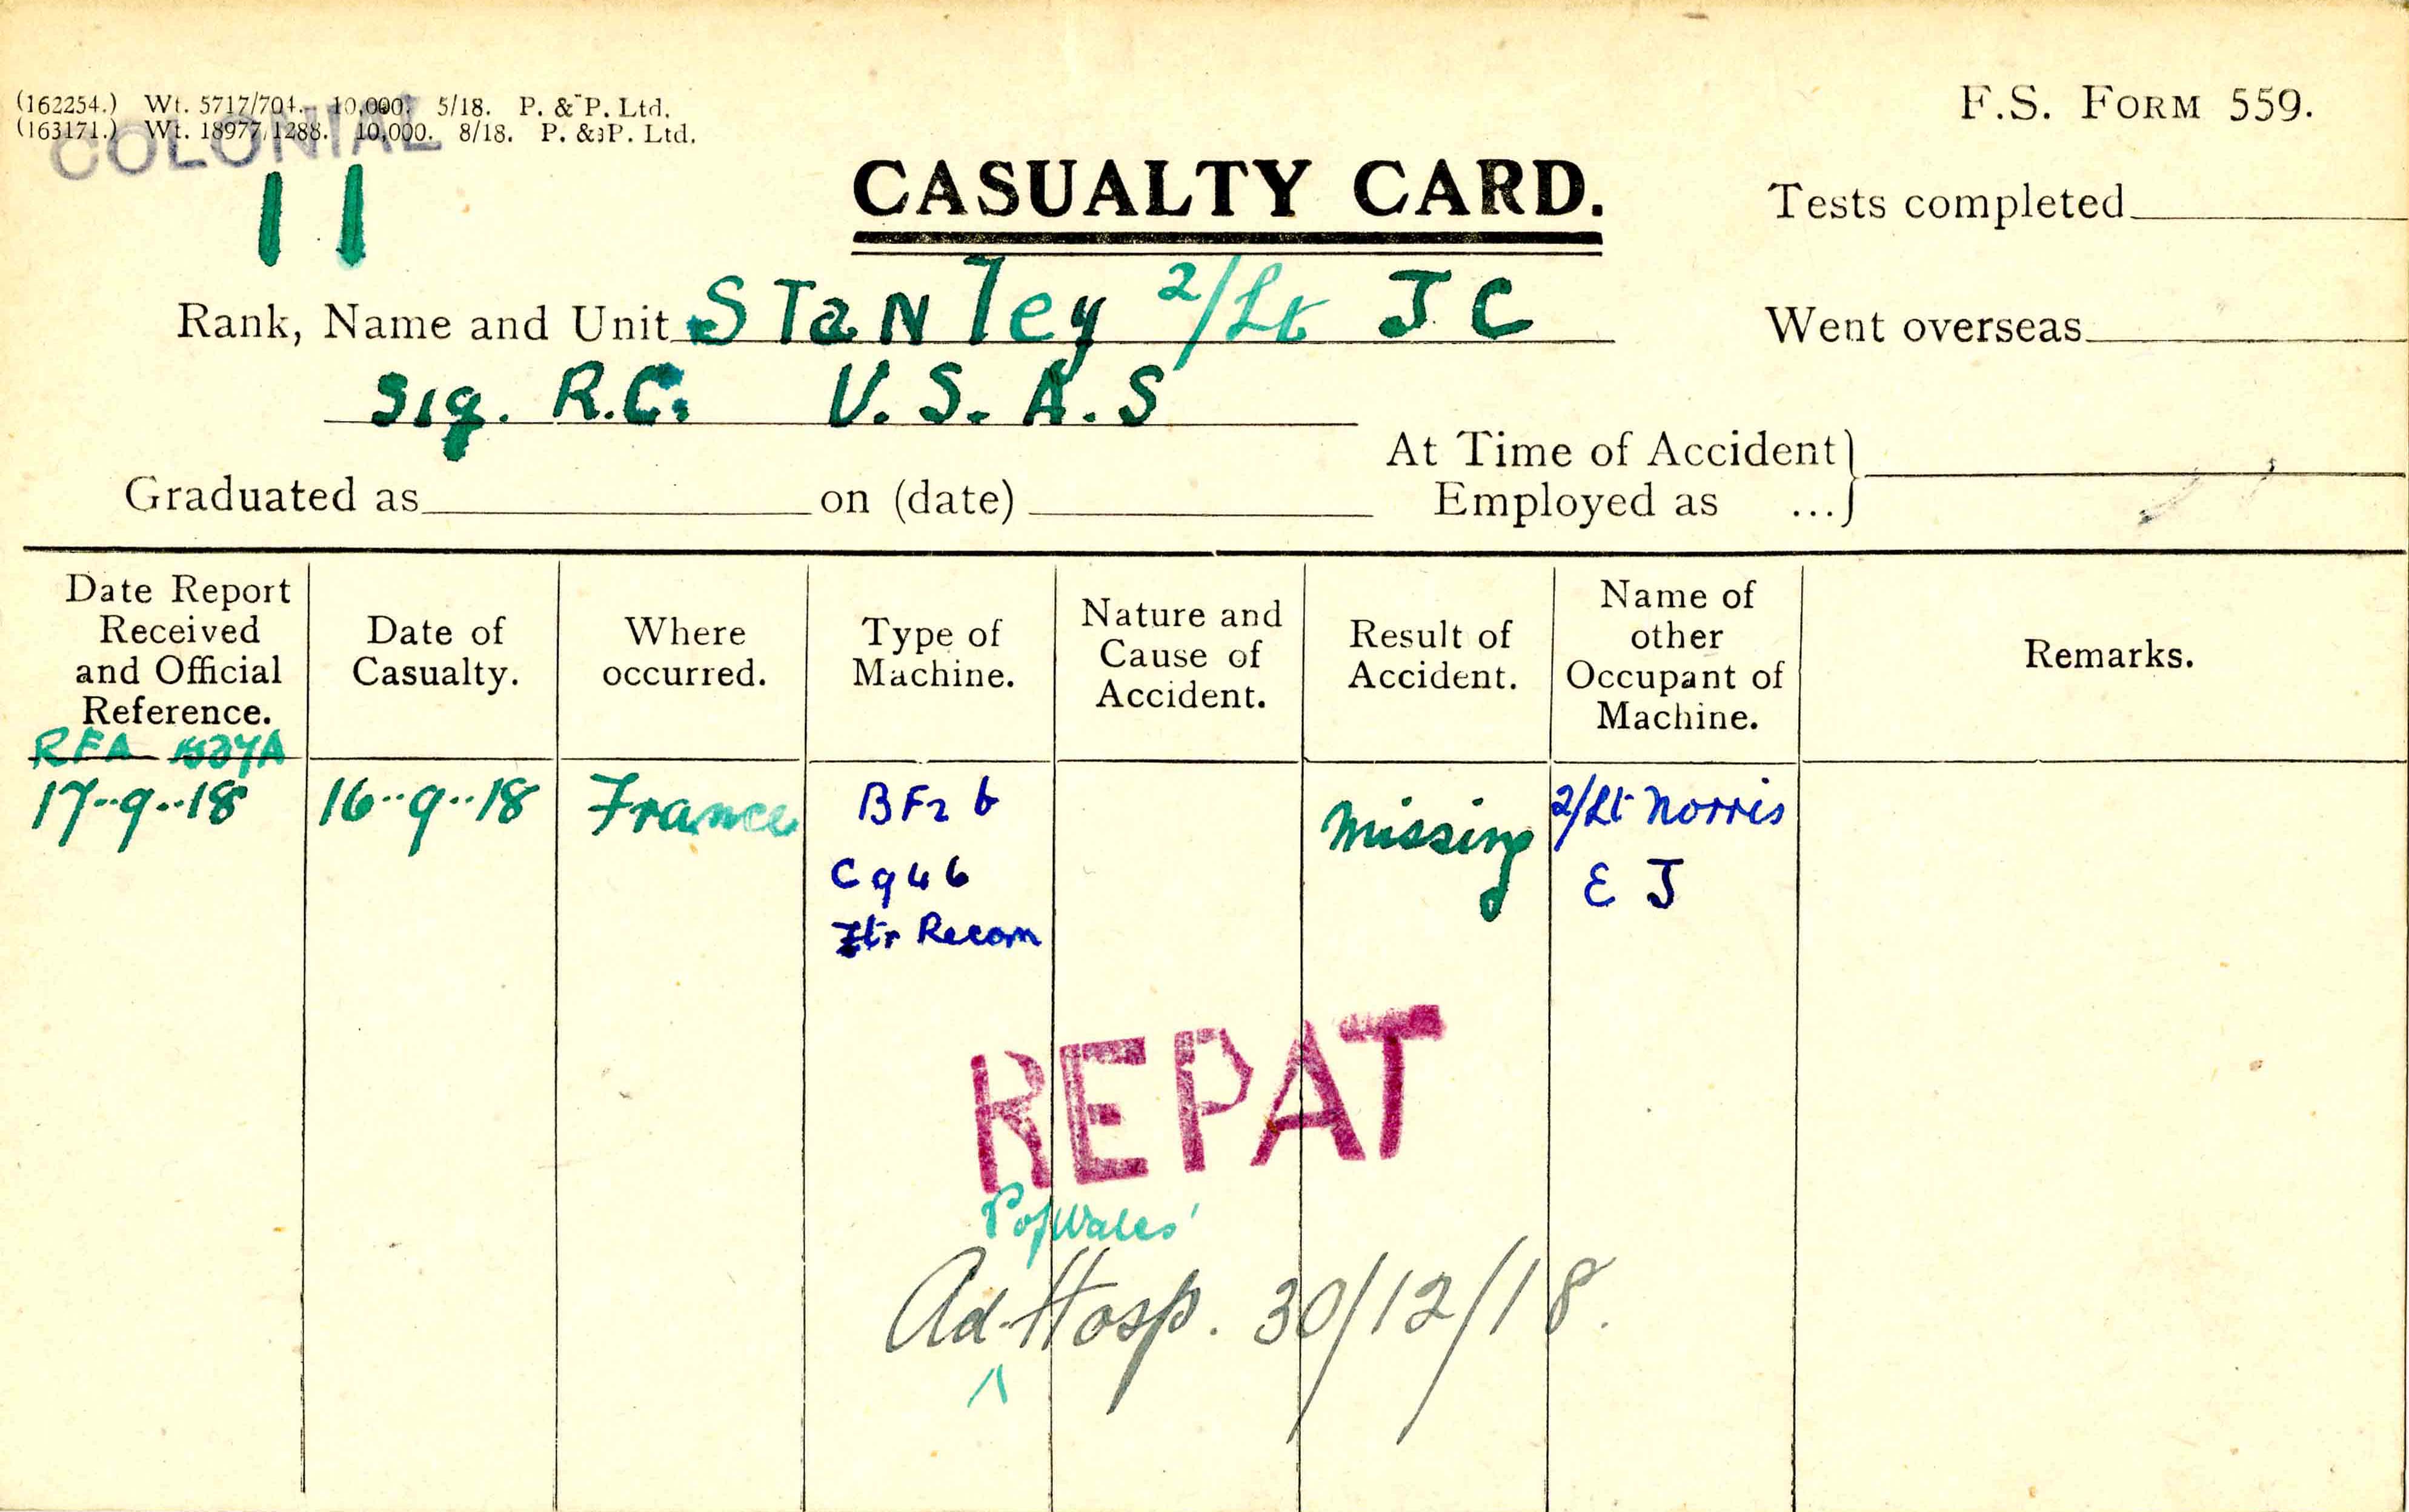 (162254.) Wt. 5717/704. 10,000. 5/18. P. & P. Ltd.
(163171.) Wt. 18977/1288. 10,000. 8/18. P. & P. Ltd.
COLONIAL
11
F.S. FORM 559.
CASUALTY CARD.
Tests completed
Rank, Name and Unit Stanley 2/Lt J C
Went overseas
Sig. R.C. U.S.A.S
At Time of Accident
Employed as ...
Graduated as on (date)
Date Report Received and Official Reference.
Date of Casualty.
Where occurred.
Type of Machine.
Nature and Cause of Accident.
Result of Accident.
Name of other Occupant of Machine.
Remarks.
RFA
17..9..18 16..9..18 France BF2b Missing 2/Lt Norris
C946 E J
Ftr Recon
REPAT
PofWales'
Ad. Hosp. 30/12/18.